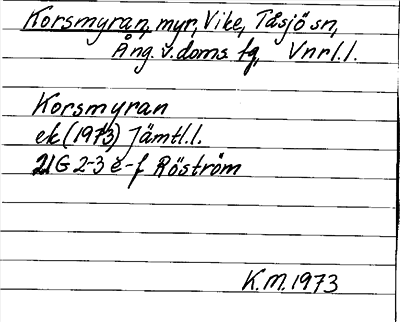 Korsmyran, myr, Vike, Tåsjö sn,
Ång. v. doms fg, Vnrl.l.
Korsmyran
ek (1973) Jämtl.l.
21G 2-3 e-f Röström
K.M. 1973